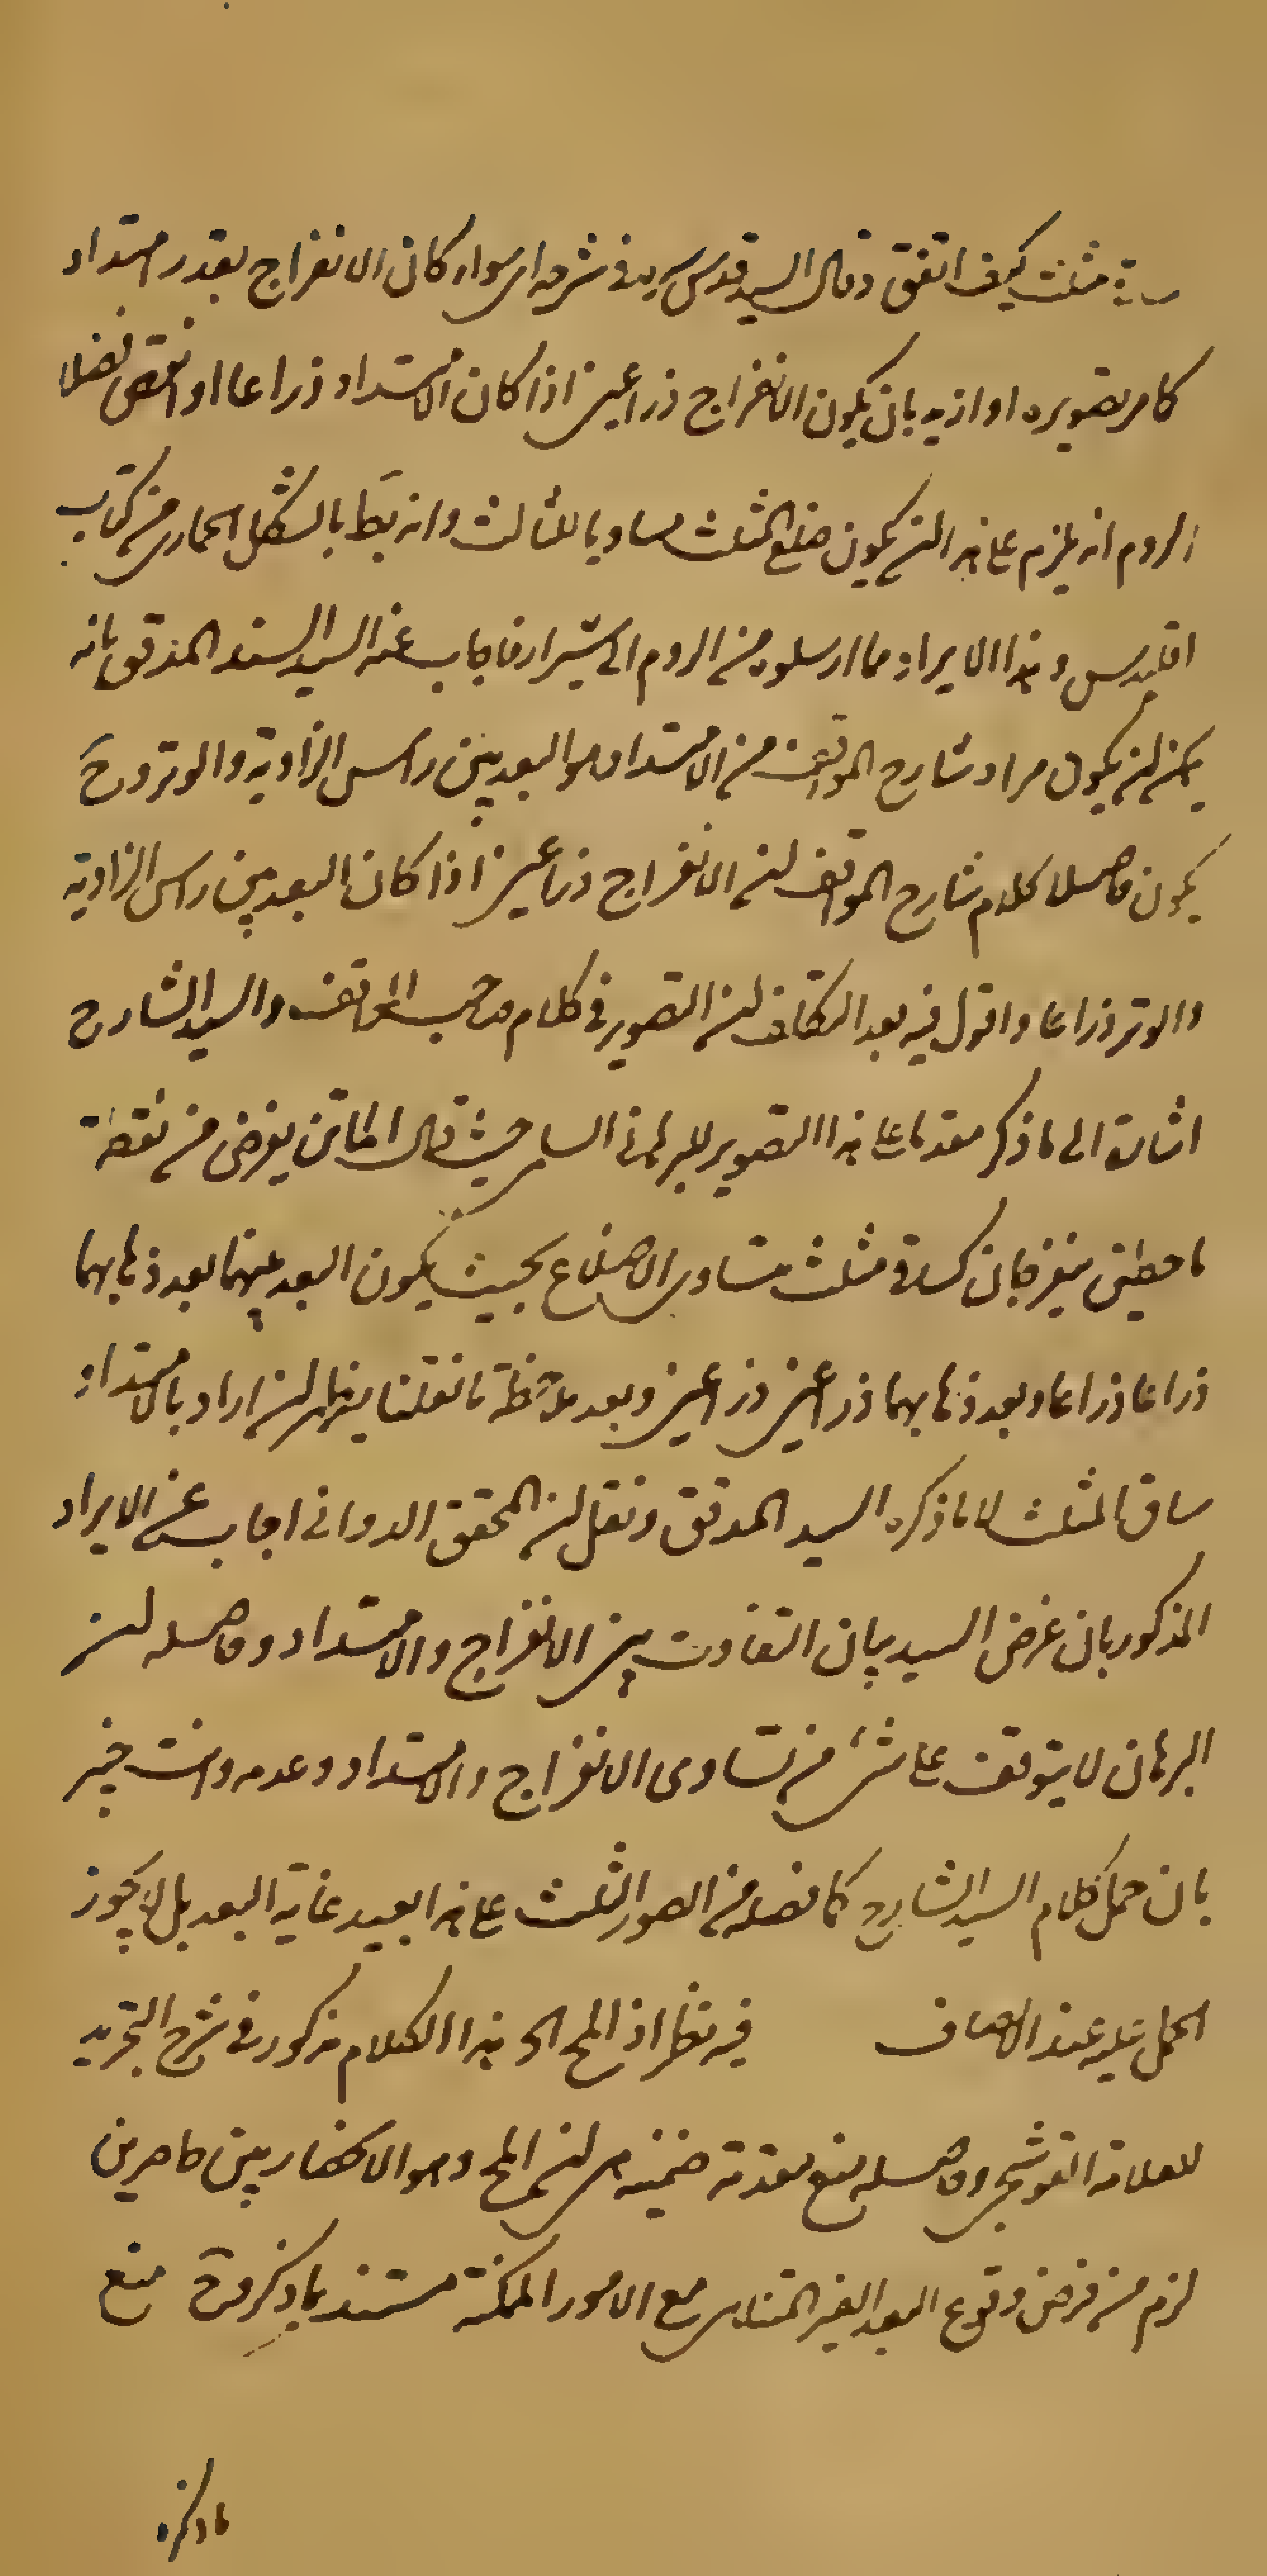 مثلث كيف اتفق وقال السيد قدس سره في شرحه اى سواء كان الانفراج بقدر امتداد
كما مر تصويره او ازيد بان يكون الانفراج ذراعين اذا كان الامتداد ذراعا او انقص فضلا
الروم انه يلزم على هذا ان يكون ضلع المثلث مساويا للثالث وانه بط بالشكل الحمارى من كتاب
اقليدس وهذا الايراد مما ارسلوه من الروم الى شيراز فاجاب عنه السيد السند المدقق بانه
يمكن ان يكون مراد شارح المواقف من الامتداد هو البعد بين راس الزاوية والوتر وح
يكون حاصل كلام شارح المواقف ان الانفراج ذراعين اذا كان البعد بين راس الزاوية
والوتر ذراعا واقول فيه بعد التكلف ان التصوير في كلام صاحب المواقف والسيد الشارح
اشارة الى ما ذكر مقدما على هذا التصوير للبرهان السلمى حيث قال الماتن يفرض من نقطة
ما خطين ينفرجان كساقى مثلث متساوى الاضلاع بحيث يكون البعد بينهما بعد ذهابهما
ذراعا ذراعا وبعد ذهابهما ذراعين ذراعين وبعد ملاحظة ما نقلنا يظهر ان اراد بالامتداد
ساق المثلث لا ما ذكره السيد المدقق ونقل ان المحقق الدوانى اجاب عن الايراد
المذكور بان غرض السيد بيان التفاوت بين الانفراج والامتداد وحاصله ان
البرهان لا يتوقف على شئ من تساوى الانفراج والامتداد وعدمه وانت خبير
بان حمل كلام السيد الشارح كما فصله من الصور الثلث على هذا بعيد غاية البعد بل لا يجوز
الحمل عليه عند الانصاف فيه نظر اذ المح الخ هذا الكلام مذكور في شرح التجريد
للعلامة القوشجى وحاصله منع مقدمة ضمنية هى ان المح وهو الانحصار بين حاصرين
لزم من فرض وقوع البعد الغير المتناهى مع الامور الممكنة مستند بما ذكروه منع
ما ذكره